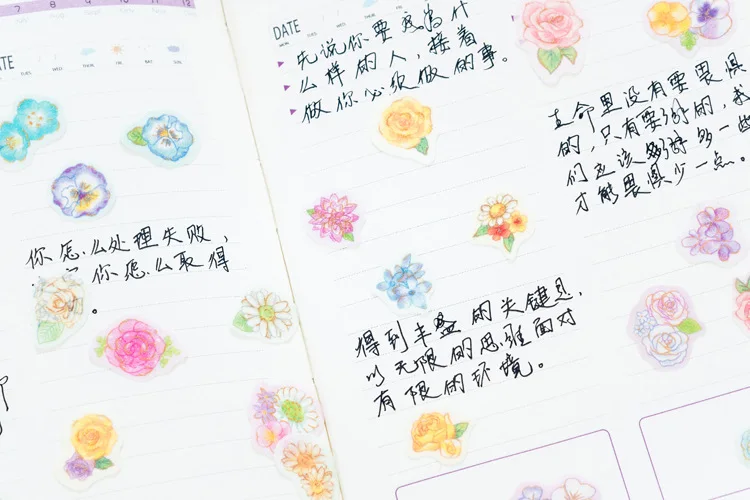 DATE
你怎么处理失败，
你怎么取得
。
DATE
先说你要成为什
么样的人，接着
做你必须做的事。
得到丰盛的关键是，
以无限的思维面对
有限的环境。
生命里没有要畏惧
的，只有要 的，我
们应该 多一些
才能畏惧少一点。